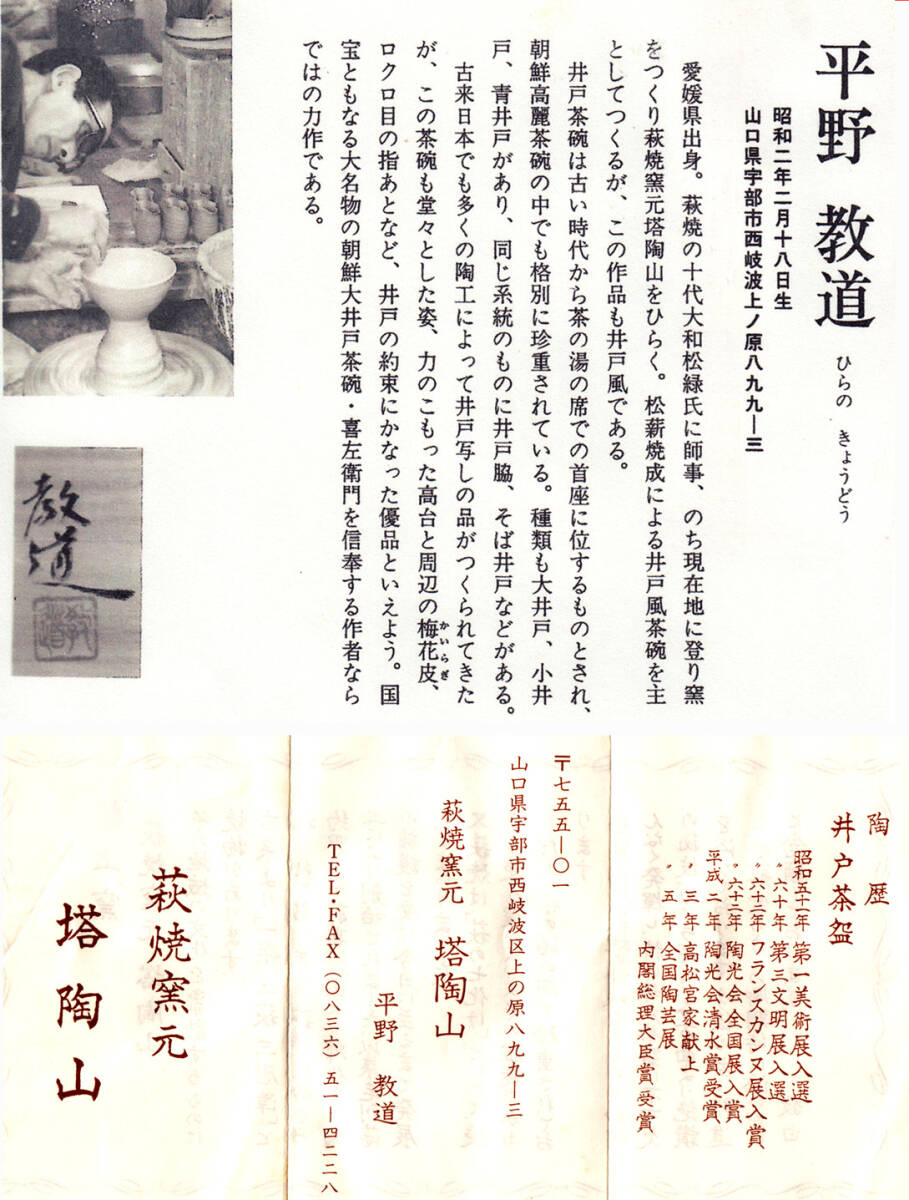 平野 教道 ひらの きょうどう
昭和二年二月十八日生
山口県宇部市西岐波上ノ原八九九―三
愛媛県出身。萩焼の十代大和松緑氏に師事、のち現在地に登り窯
をつくり萩焼窯元塔陶山をひらく。松薪焼成による井戸風茶碗を主
としてつくるが、この作品も井戸風である。
井戸茶碗は古い時代から茶の湯の席での首座に位するものとされ、
朝鮮高麗茶碗の中でも格別に珍重されている。種類も大井戸、小井
戸、青井戸があり、同じ系統のものに井戸脇、そば井戸などがある。
古来日本でも多くの陶工によって井戸写しの品がつくられてきた
が、この茶碗も堂々とした姿、力のこもった高台と周辺の梅花皮、
かいらぎ
ロクロ目の指あとなど、井戸の約束にかなった優品といえよう。国
宝ともなる大名物の朝鮮大井戸茶碗・喜左衛門を信奉する作者なら
ではの力作である。
教道
教道
陶歴
井戸茶盌
昭和五十一年 第一美術展入選
〃 六十年 第三文明展入選
〃 六十二年 フランスカンヌ展入賞
〃 六十三年 陶光会全国展入賞
平成二年 陶光会清水賞受賞
〃 三年 高松宮家献上
〃 五年 全国陶芸展
内閣総理大臣賞受賞
〒七五五―〇一
山口県宇部市西岐波区上の原八九九―三
萩焼窯元 塔陶山
平野 教道
TEL・FAX(〇八三六)五一―四二二八
萩焼窯元
塔陶山